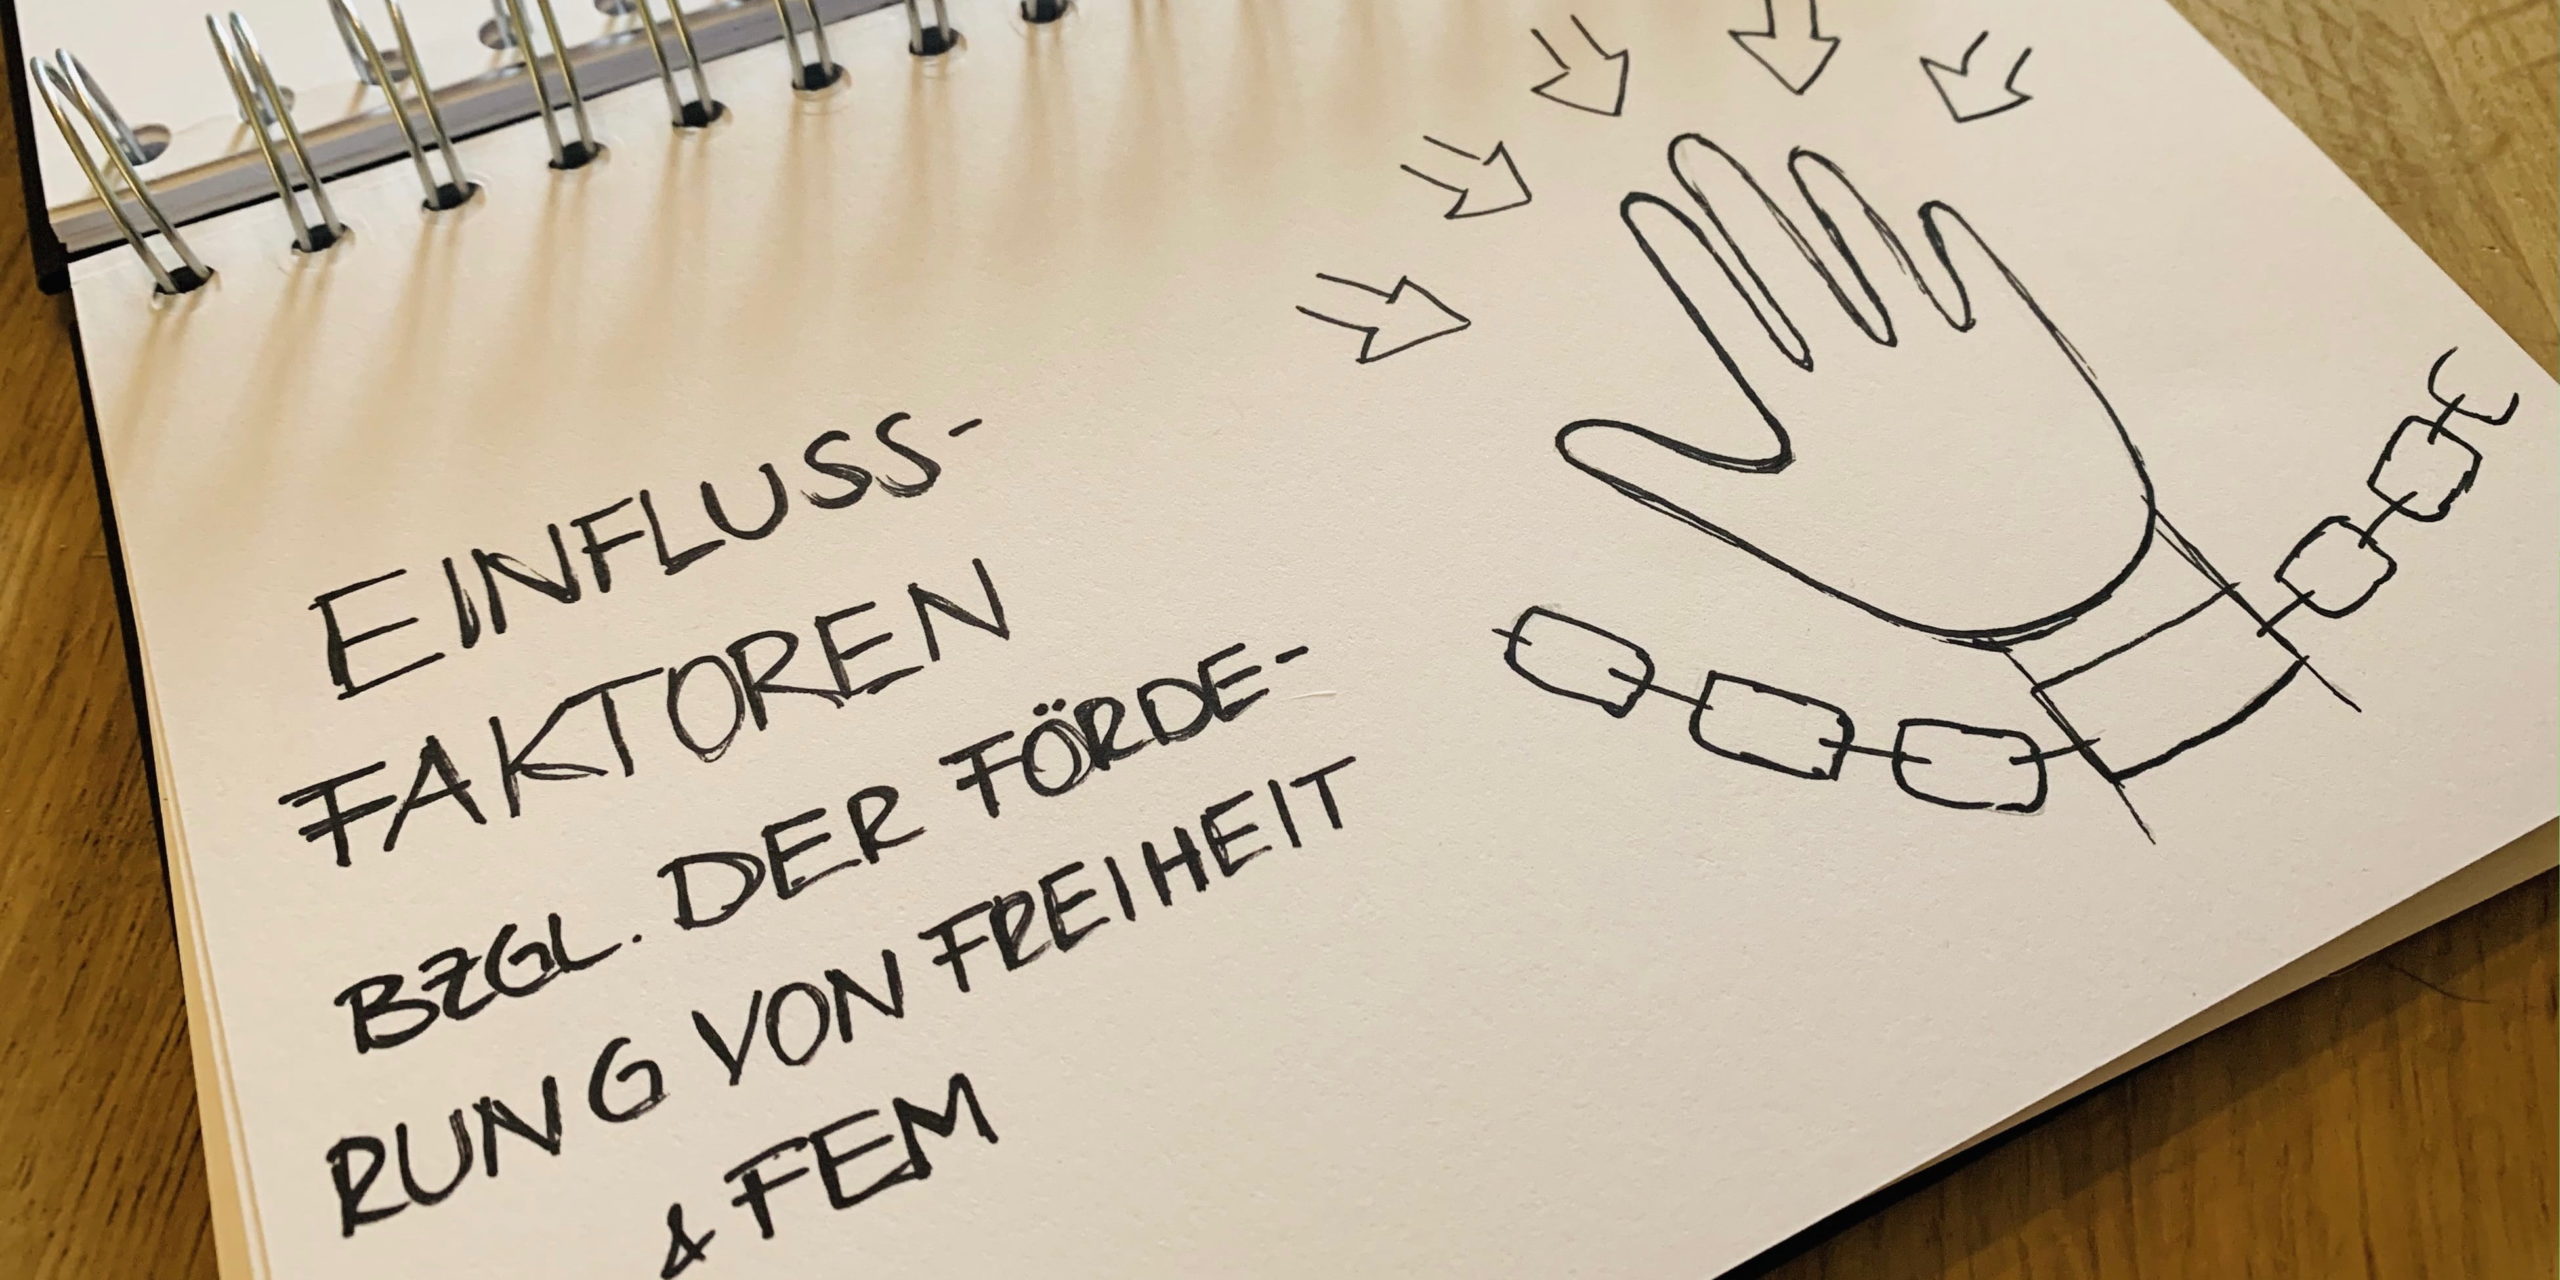 EINFLUSS-
FAKTOREN
BZGL. DER FÖRDE-
RUNG VON FREIHEIT
& FEM